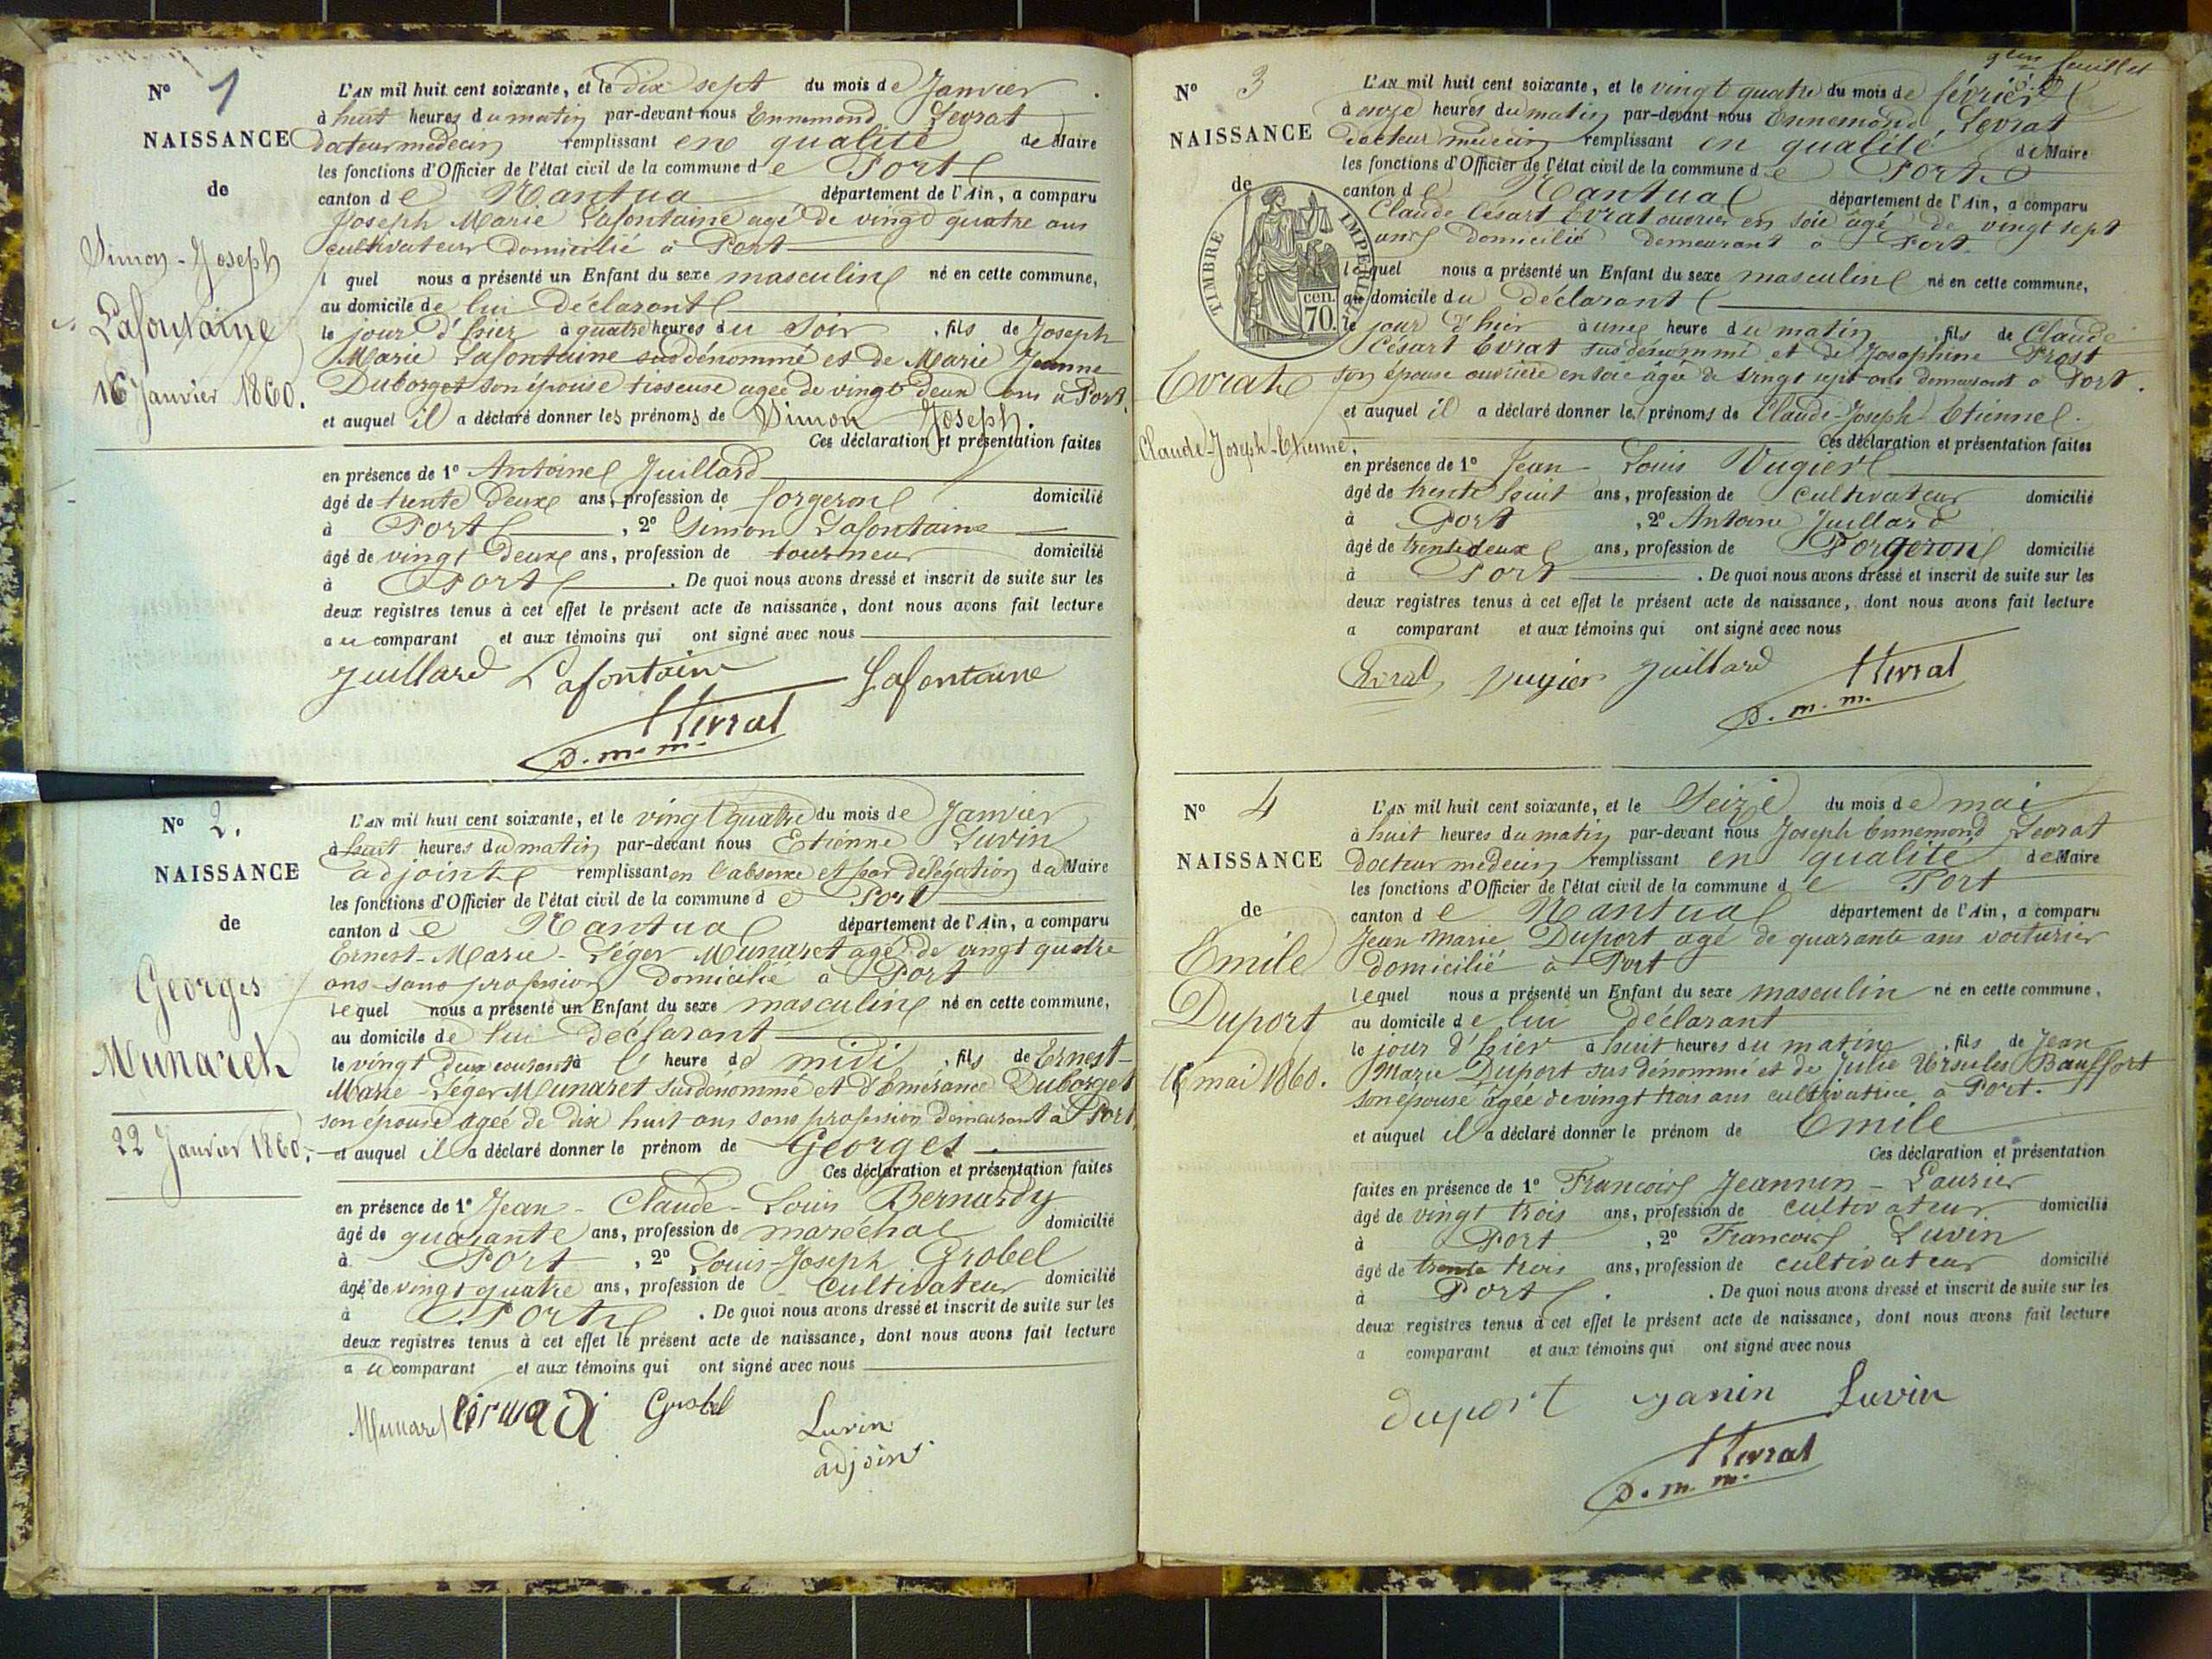 N° 1
NAISSANCE
de
Simon-Joseph
Lafontaine
16 Janvier 1860.
L'AN mil huit cent soixante, et le dix sept du mois de Janvier
à huit heures du matin par-devant nous Ennemond Levrat
docteur medecin remplissant en qualité de Maire
les fonctions d'Officier de l'état civil de la commune de Port
canton de Nantua département de l'Ain, a comparu
Joseph Marie Lafontaine agé de vingt quatre ans
cultivateur domicilié à Port
l quel nous a présenté un Enfant du sexe masculin né en cette commune,
au domicile de lui déclarant
le jour d'hier à quatre heures du soir, fils de Joseph
Marie Lafontaine susdénommé et de Marie Jeanne
Duborget son épouse tisseuse agée de vingt deux ans à Port.
et auquel il a déclaré donner les prénoms de Simon Joseph.
Ces déclaration et présentation faites
en présence de 1° Antoine Juillard
âgé de trente deux ans, profession de forgeron domicilié
à Port, 2° Simon Lafontaine
âgé de vingt deux ans, profession de tourneur domicilié
à Port. De quoi nous avons dressé et inscrit de suite sur les
deux registres tenus à cet effet le présent acte de naissance, dont nous avons fait lecture
au comparant et aux témoins qui ont signé avec nous
Juillard Lafontaine Lafontaine
Levrat
d. m. m.
N° 2.
NAISSANCE
de
Georges
Munaret
22 Janvier 1860.
L'AN mil huit cent soixante, et le vingt quatre du mois de Janvier
à huit heures du matin par-devant nous Etienne Luvin
adjoint remplissant en l'absence et par délégation du Maire
les fonctions d'Officier de l'état civil de la commune de Port
canton de Nantua département de l'Ain, a comparu
Ernest-Marie-Léger Munaret agé de vingt quatre
ans sans profession domicilié à Port
lequel nous a présenté un Enfant du sexe masculin né en cette commune,
au domicile de lui déclarant
le vingt deux courant à l' heure de midi, fils de Ernest-
Marie-Léger Munaret susdénommé et d'Emérance Duborget
son épouse agée de dix huit ans sans profession demeurant à Port
et auquel il a déclaré donner le prénom de Georges.
Ces déclaration et présentation faites
en présence de 1° Jean-Claude-Louis Bernardy
âgé de quarante ans, profession de maréchal domicilié
à Port, 2° Louis-Joseph Grobel
âgé de vingt quatre ans, profession de Cultivateur domicilié
à Port. De quoi nous avons dressé et inscrit de suite sur les
deux registres tenus à cet effet le présent acte de naissance, dont nous avons fait lecture
au comparant et aux témoins qui ont signé avec nous
Munaret Grobel Luvin
adjoint
feuillet
N° 3
NAISSANCE
de
TIMBRE IMPERIAL
70 cen.
Evrat
Claude-Joseph-Etienne.
L'AN mil huit cent soixante, et le vingt quatre du mois de février
à onze heures du matin par-devant nous Ennemond Levrat
docteur médecin remplissant en qualité de Maire
les fonctions d'Officier de l'état civil de la commune de Port
canton de Nantua département de l'Ain, a comparu
Claude Césart Evrat ouvrier en soie âgé de vingt sept
ans domicilié demeurant à Port
lequel nous a présenté un Enfant du sexe masculin né en cette commune,
au domicile du déclarant
le jour d'hier à une heure du matin, fils de Claude
Césart Evrat susdénommé et de Josephine Prost
son épouse ouvrière en soie âgée de vingt sept ans demeurant à Port.
et auquel il a déclaré donner les prénoms de Claude-Joseph Etienne.
Ces déclaration et présentation faites
en présence de 1° Jean-Louis Vugier
âgé de trente huit ans, profession de cultivateur domicilié
à Port, 2° Antoine Juillard
âgé de trente deux ans, profession de Forgeron domicilié
à Port. De quoi nous avons dressé et inscrit de suite sur les
deux registres tenus à cet effet le présent acte de naissance, dont nous avons fait lecture
a comparant et aux témoins qui ont signé avec nous
Evrat Vugier Juillard Levrat
d. m. m.
N° 4
NAISSANCE
de
Emile
Duport
mai 1860.
L'AN mil huit cent soixante, et le Seize du mois de mai
à huit heures du matin par-devant nous Joseph Ennemond Levrat
docteur medecin remplissant en qualité de Maire
les fonctions d'Officier de l'état civil de la commune de Port
canton de Nantua département de l'Ain, a comparu
Jean Marie Duport agé de quarante ans voiturier
domicilié à Port
lequel nous a présenté un Enfant du sexe masculin né en cette commune,
au domicile de lui déclarant
le jour d'hier à huit heures du matin, fils de Jean
Marie Duport sus dénommé et de Julie Ursules Bauffort
son épouse agée de vingt trois ans cultivatrice à Port.
et auquel il a déclaré donner le prénom de Emile
Ces déclaration et présentation
faites en présence de 1° Francois Jeannin-Laurier
âgé de vingt trois ans, profession de cultivateur domicilié
à Port, 2° Francois Luvin
âgé de trente trois ans, profession de cultivateur domicilié
à Port. De quoi nous avons dressé et inscrit de suite sur les
deux registres tenus à cet effet le présent acte de naissance, dont nous avons fait lecture
a comparant et aux témoins qui ont signé avec nous
duport janin Luvin
Levrat
d. m. m.